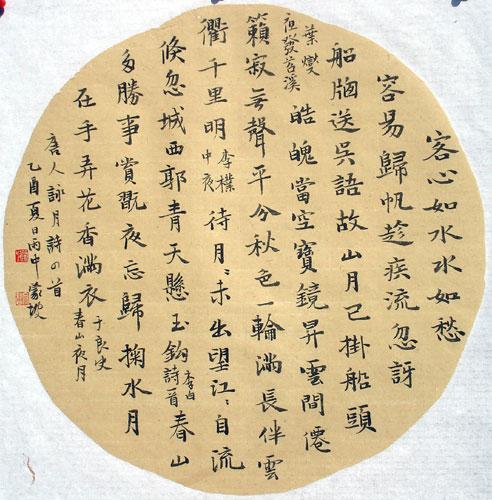 客心如水水如愁
容易歸帆趁疾流忽訝
船牕送吳語故山月已掛船頭
葉燮
夜發苕溪
皓魄當空寶鏡昇雲間僊
籟寂無聲平分秋色一輪滿長伴雲
衢千里明
李樸
中夜
待月〻未出望江〻自流
倏忽城西郭青天懸玉鈎
李白
詩一首
春山
多勝事賞翫夜忘歸掬水月
在手弄花香滿衣
于良史
春山夜月
唐人詠月詩四首
乙酉夏日雨中蒙坡